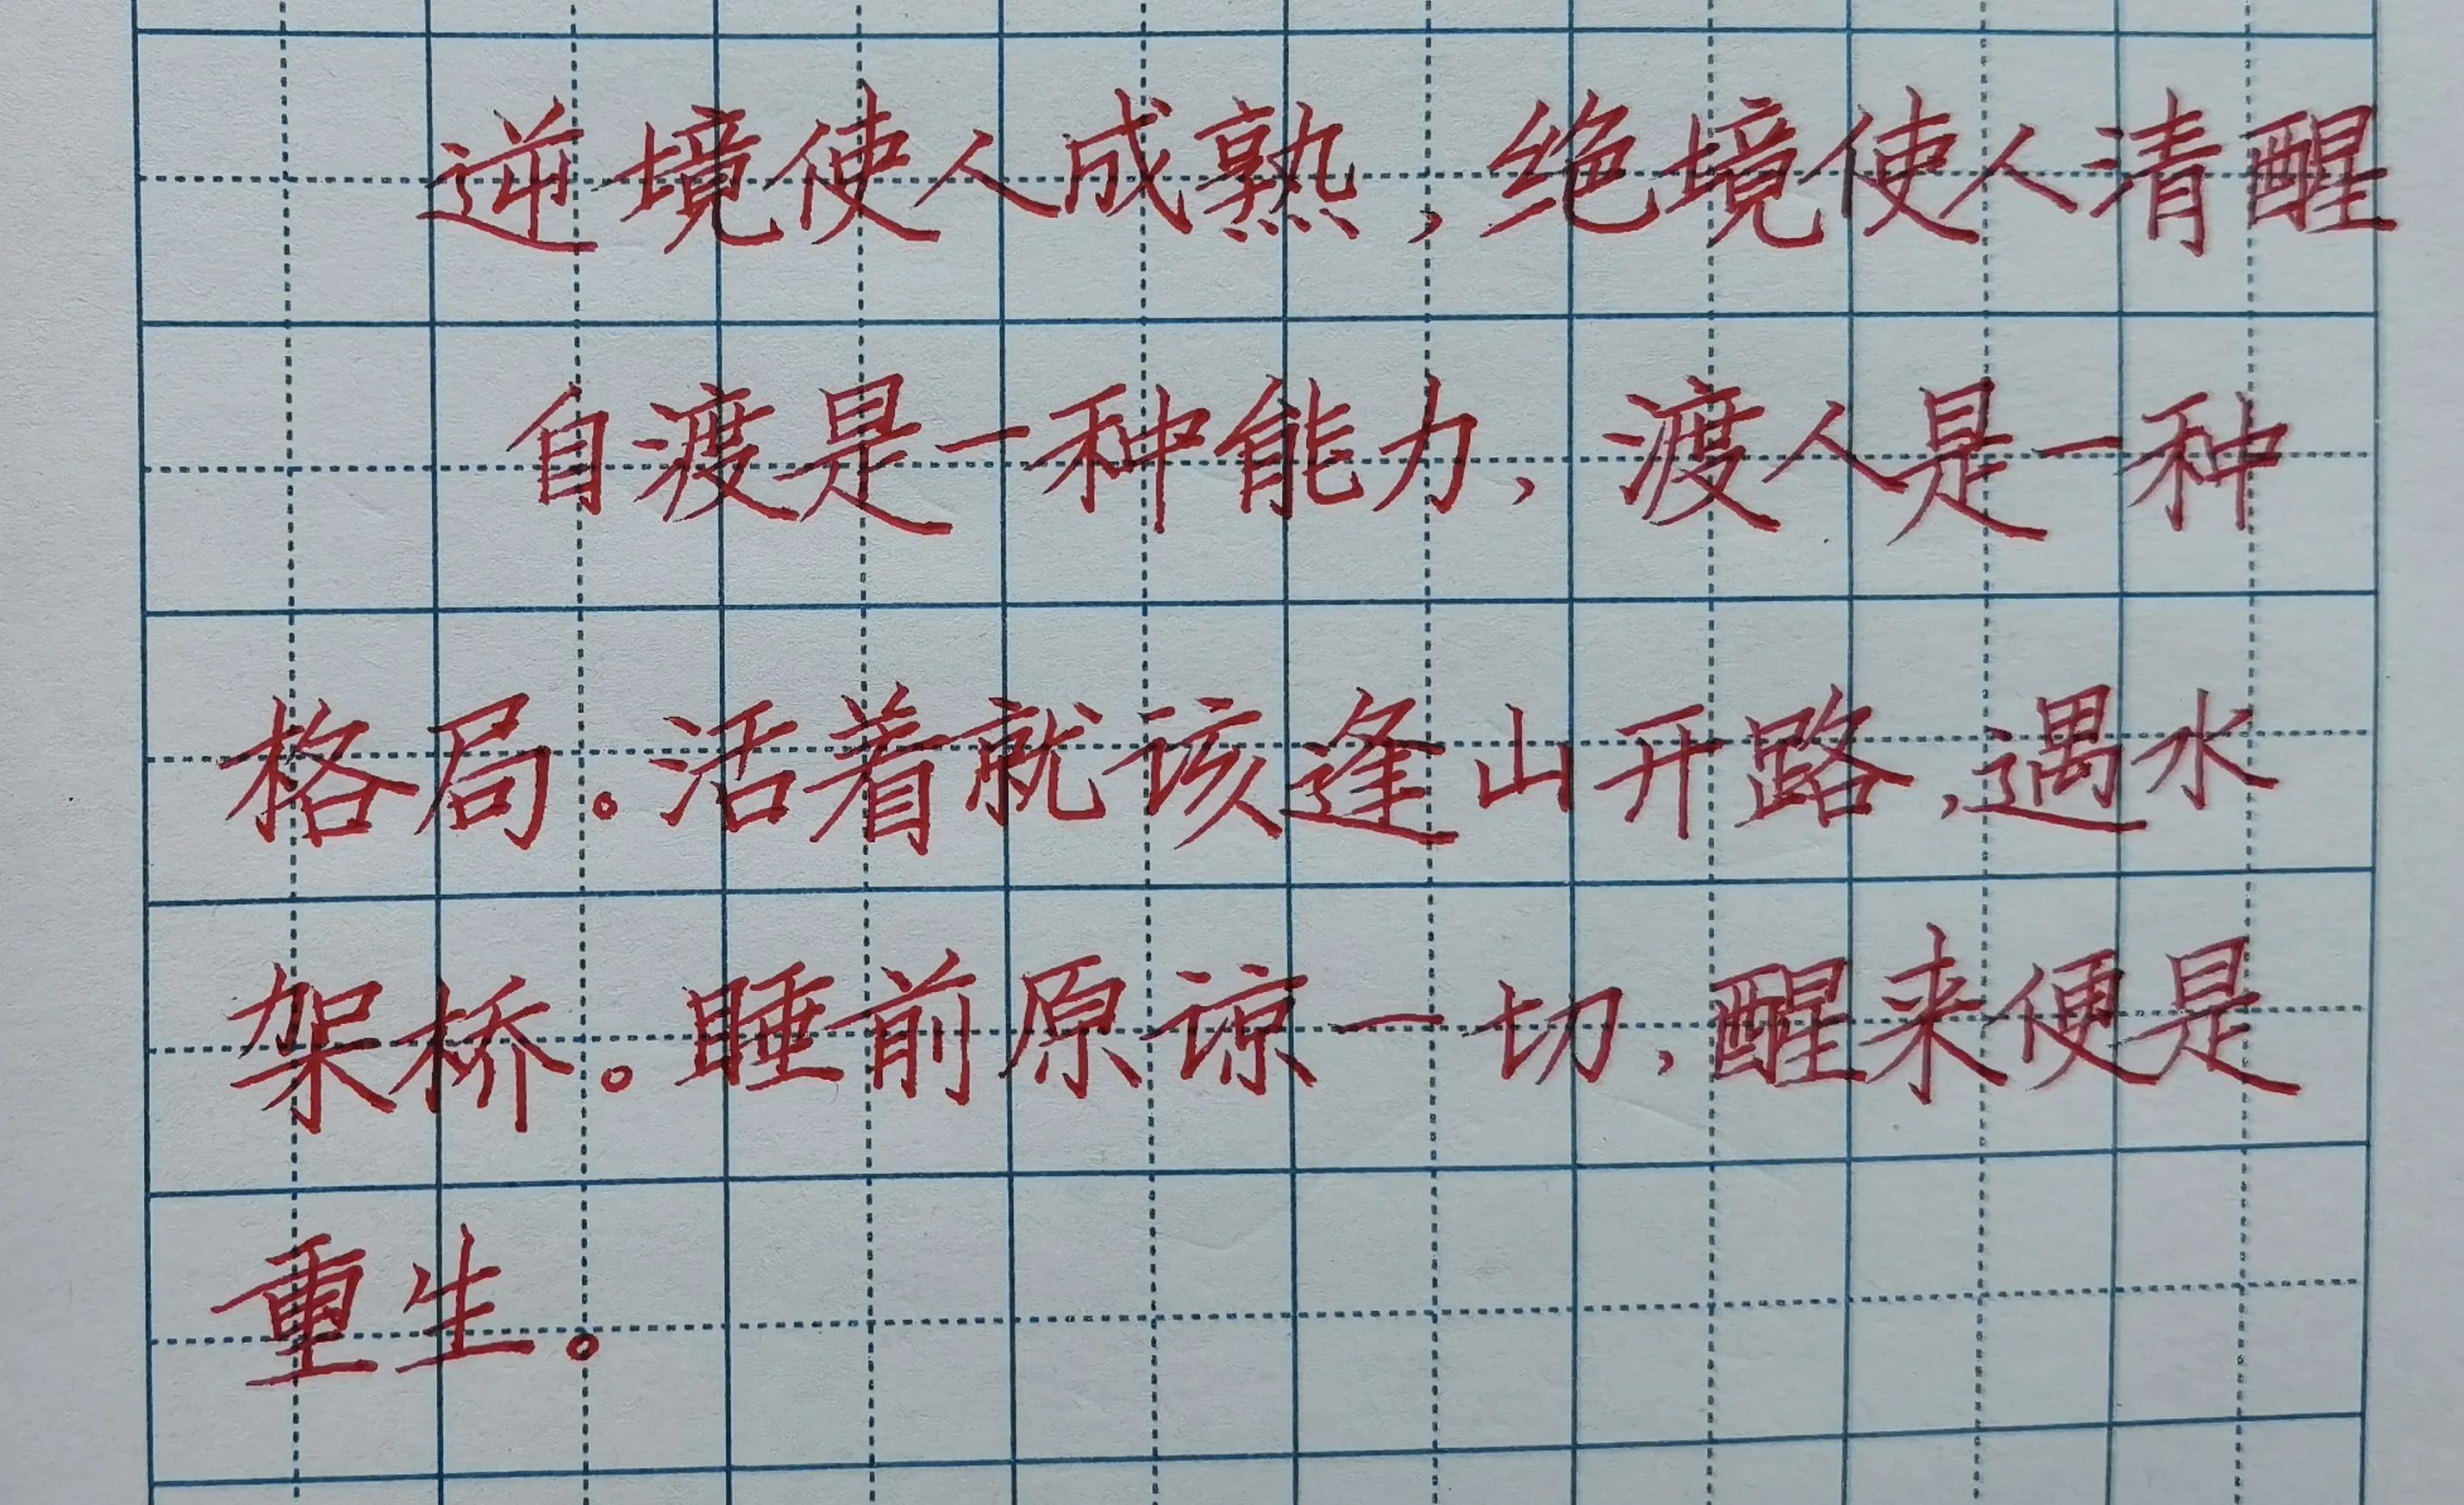 逆境使人成熟，绝境使人清醒
自渡是一种能力，渡人是一种
格局。活着就该逢山开路，遇水
架桥。睡前原谅一切，醒来便是
重生。